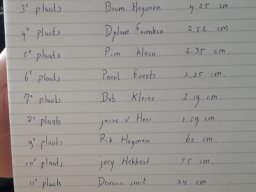 3e plaats Bram Heymen 4.25 cm
4e plaats Dylano Franken 2.52 cm
5e plaats Pim Klein 2.35 cm
6e plaats Paul Everts 2.25 cm.
7e plaats Bob Kleine 2.19 cm.
8e plaats 1.59 cm
9e plaats Rik Heymen 62 cm
10e plaats jory Hebbent 55 cm.
11e plaats Demian smit 24 cm